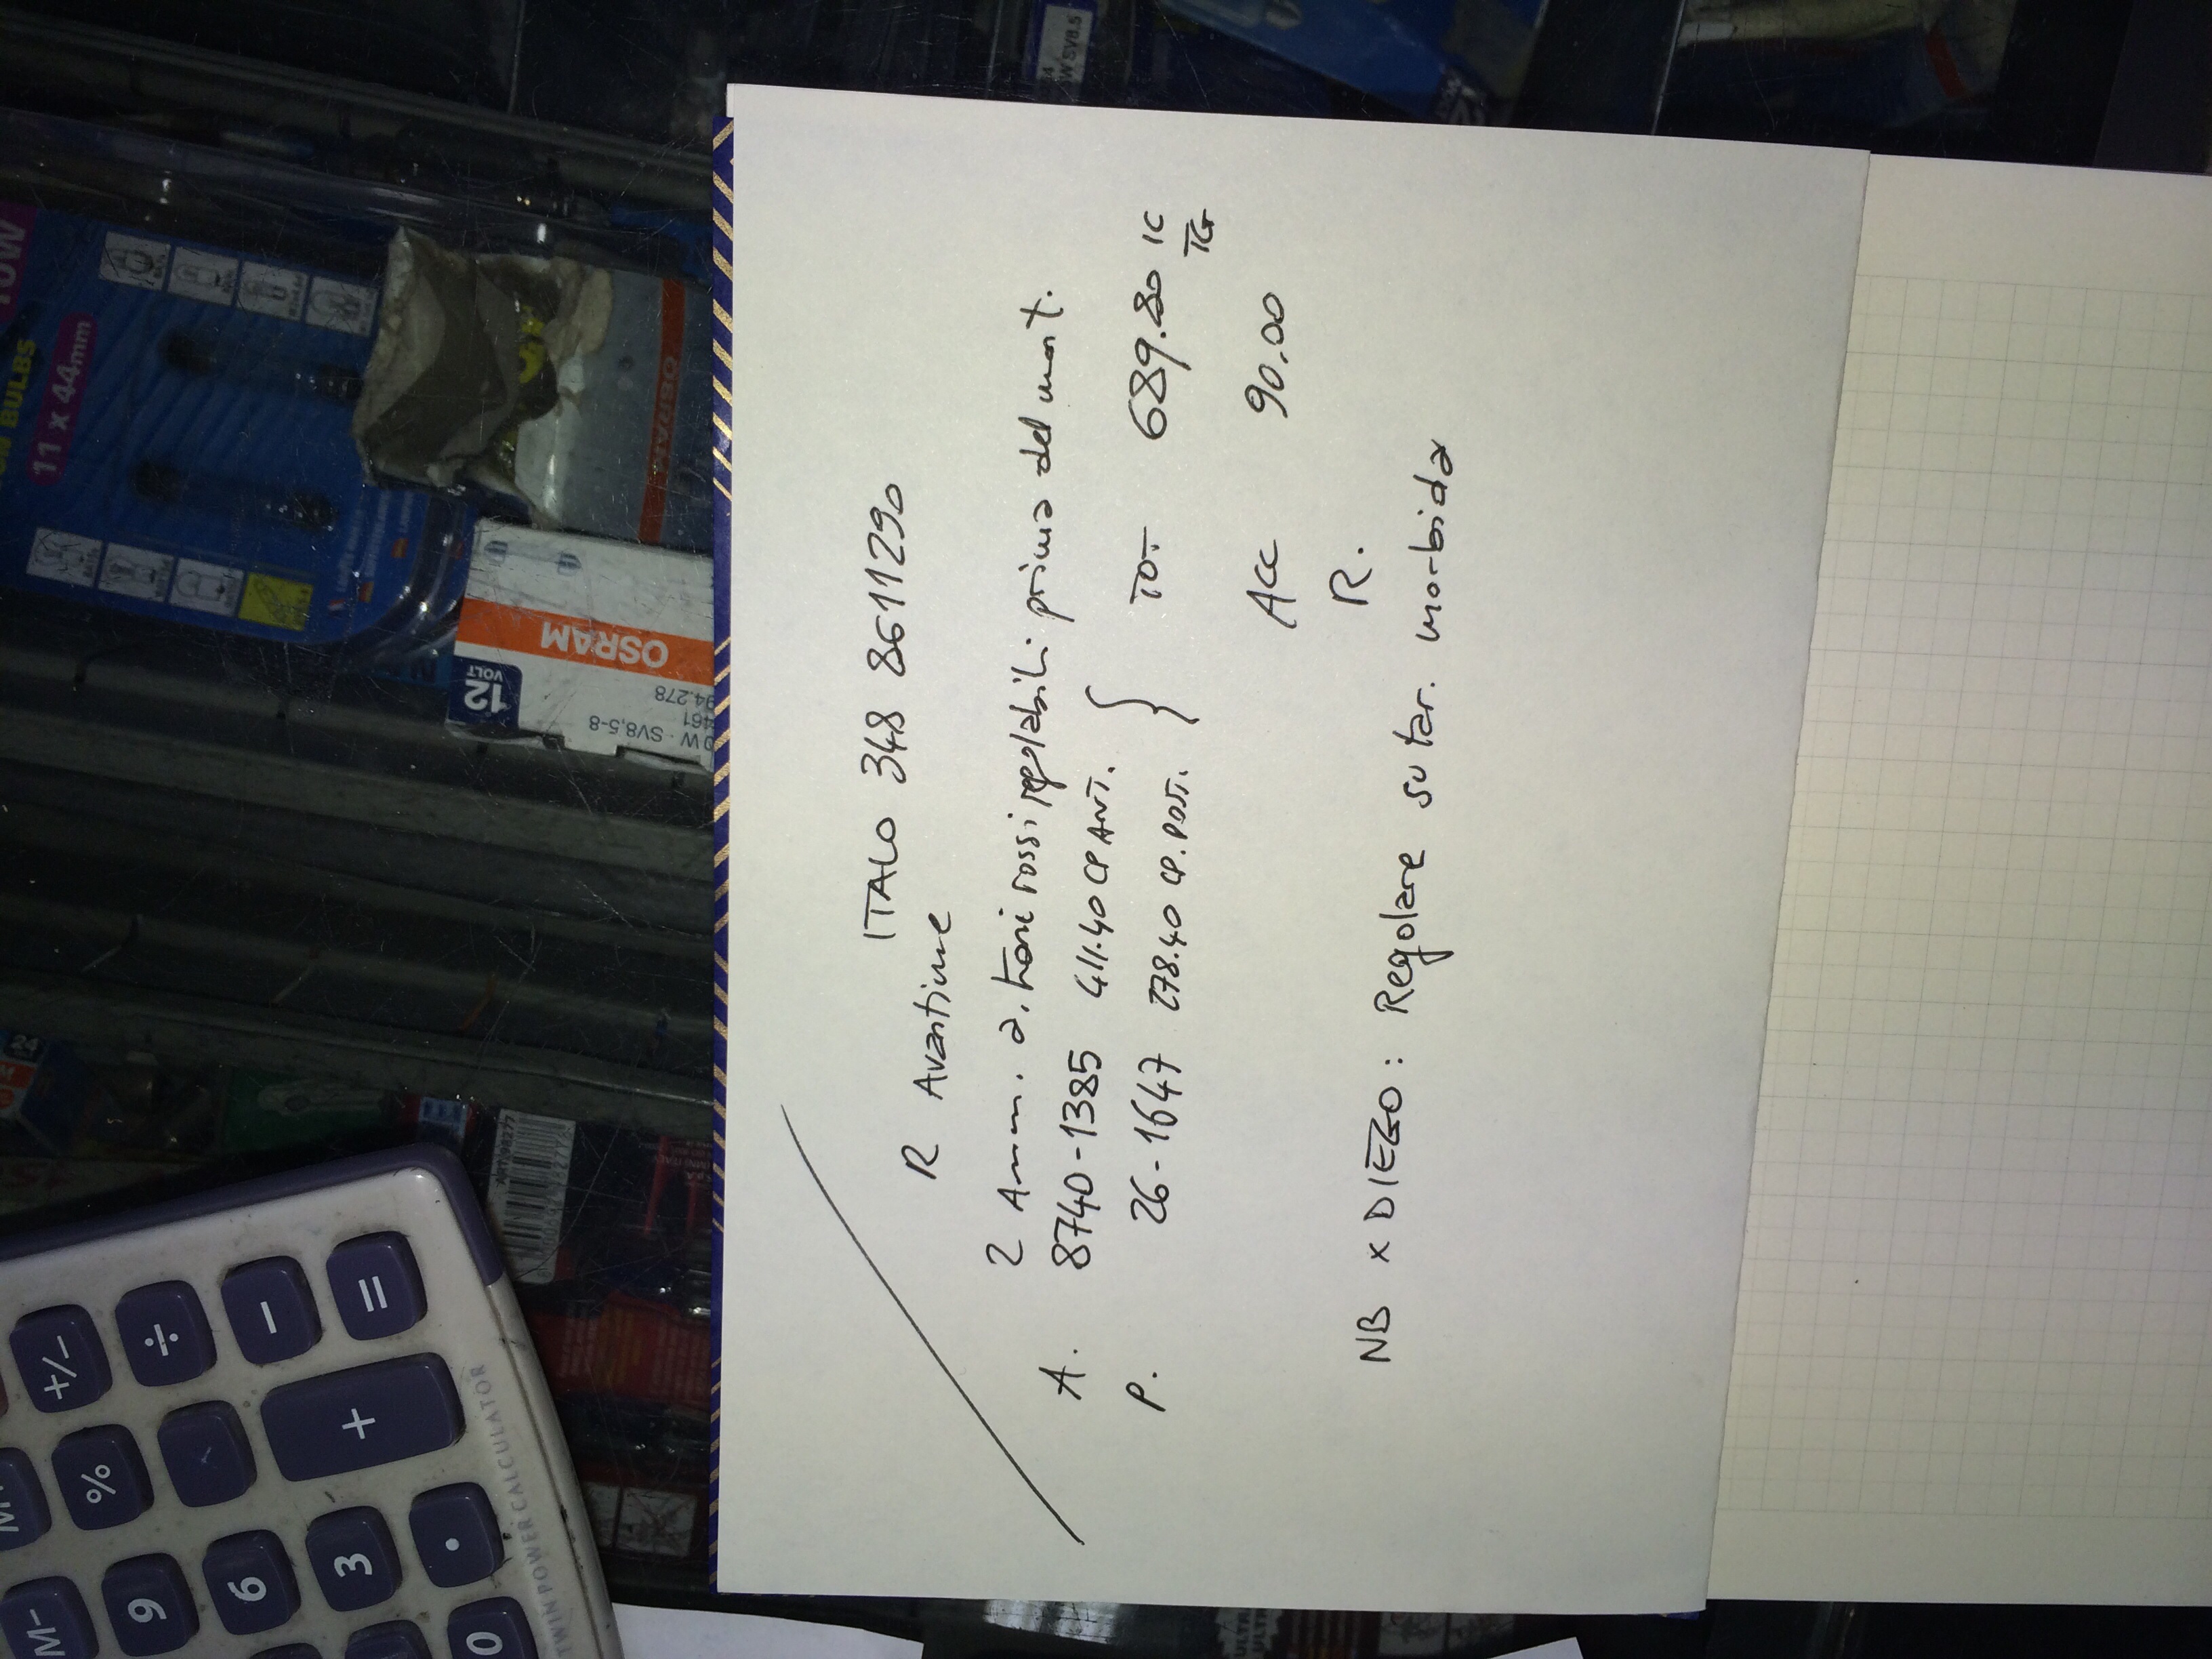 ITALO 348 8611290
R Avantime
2 Amm. a, tori rossi regolabili prima del mont.
A. 8740-1385 411.40 CP ANT.
P. 26-1647 278.40 CP. POST.
} TOT 689.80 IC
TG
Acc 90.00
R.
NB x DIEGO: Regolare su tar. morbida
BULBS
11 x 44mm
10W
OSRAM
12
VOLT
94.278
461
0W - SV8,5-8
OSRAM
W SV8.5
24
+/-
÷
-
=
%
+
M-
9
6
3
.
0
TWIN POWER CALCULATOR